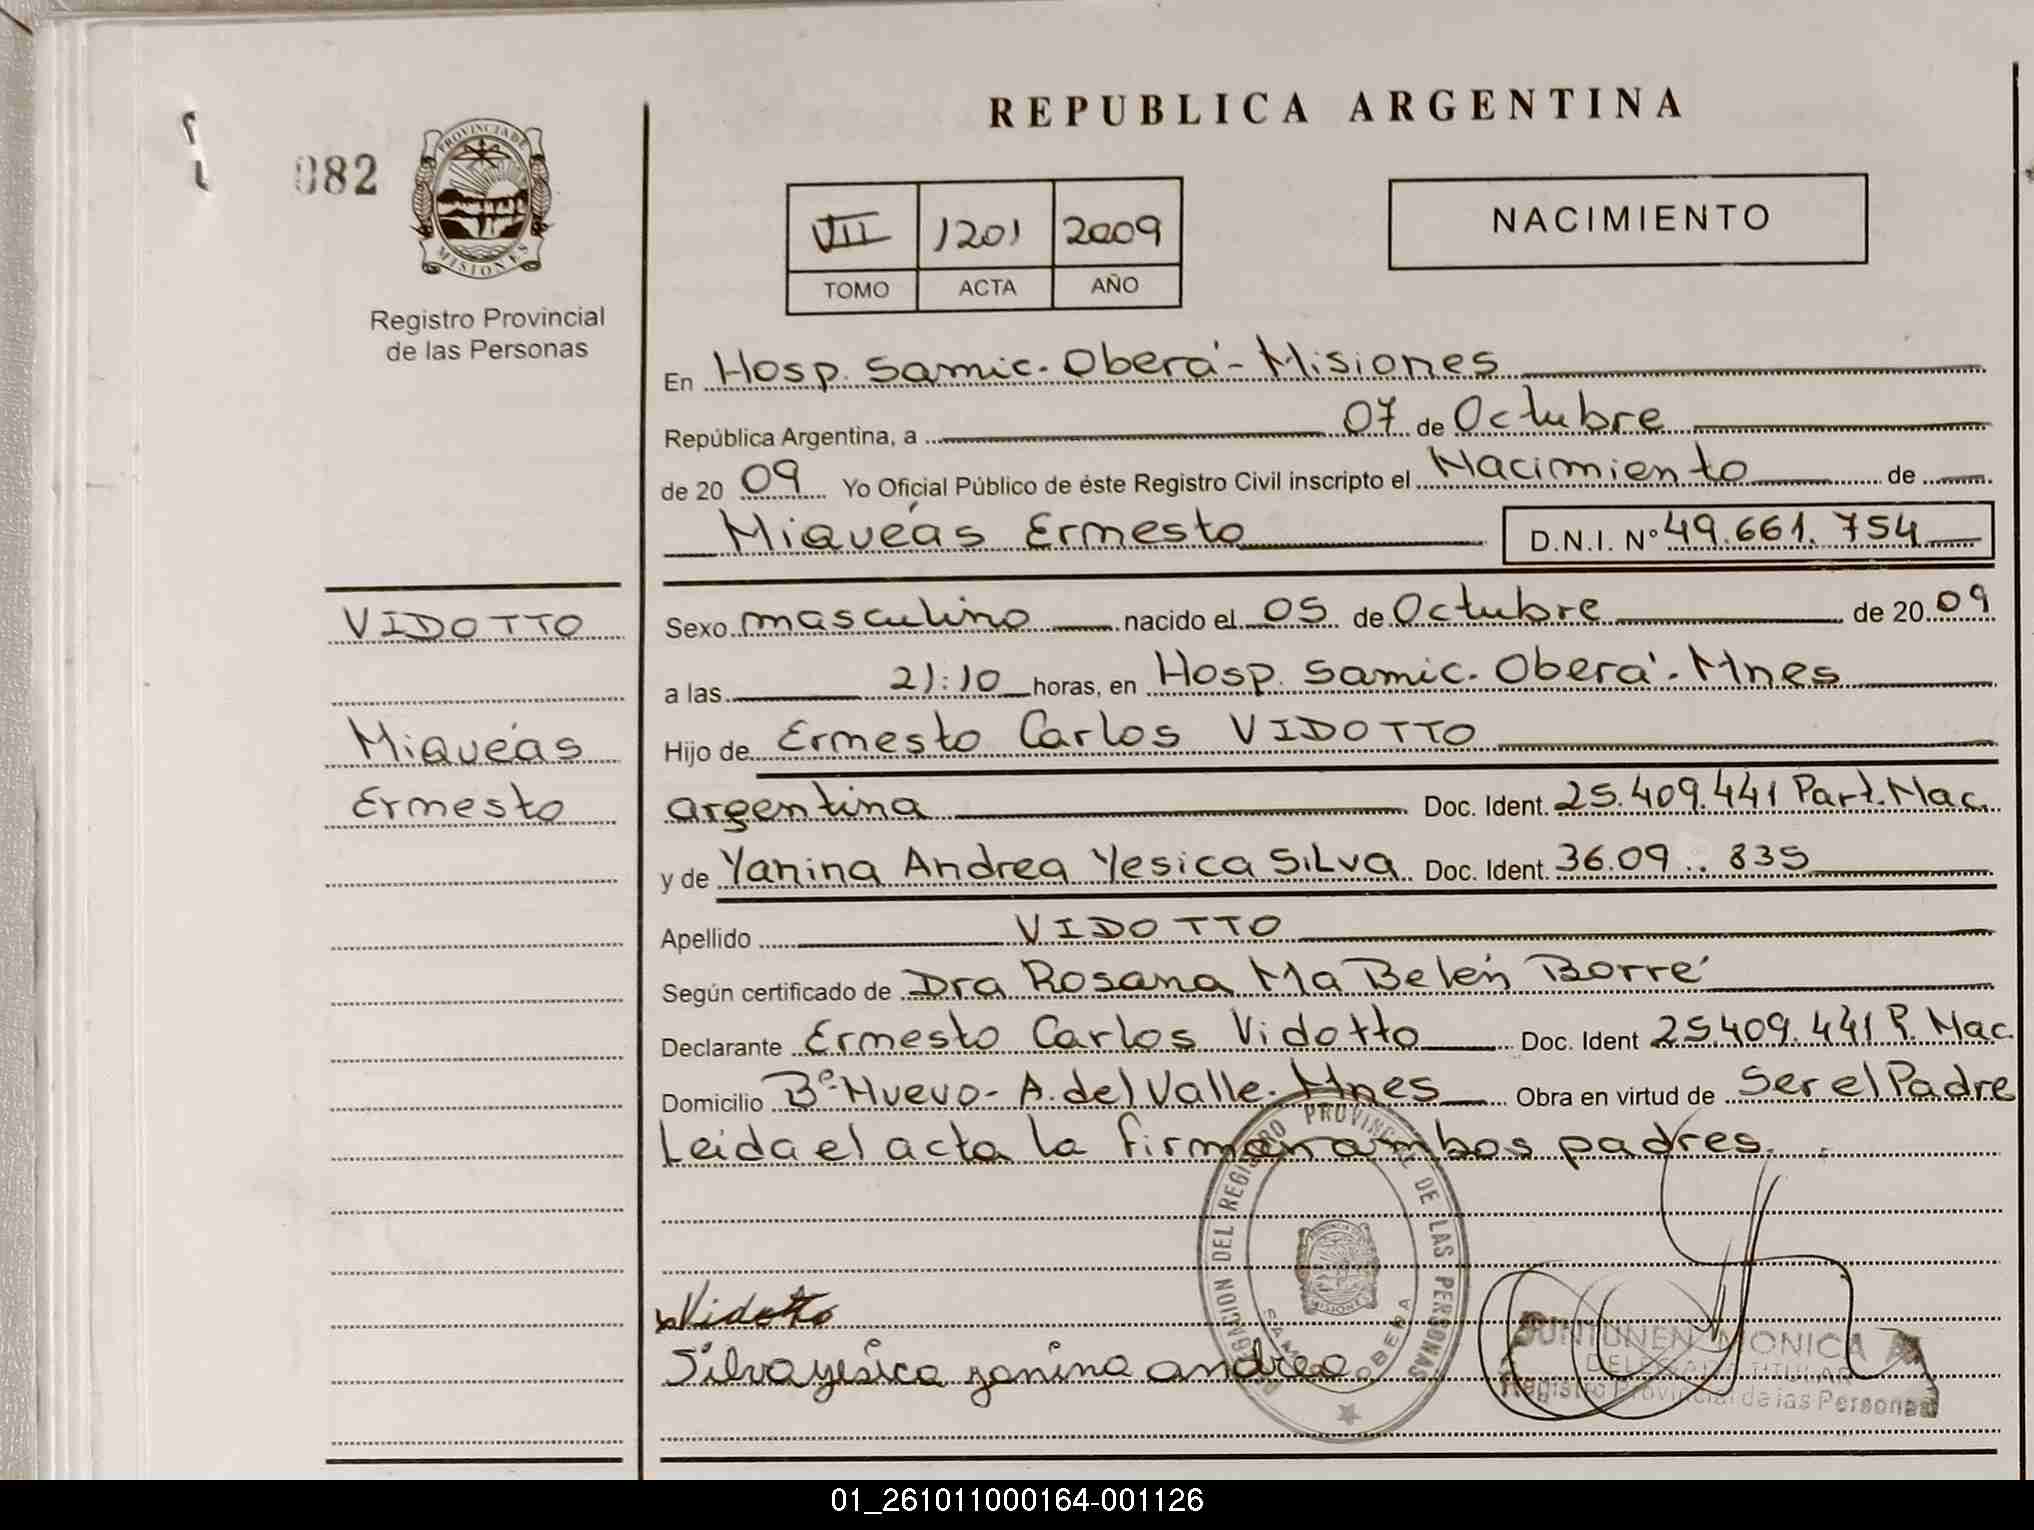 REPUBLICA ARGENTINA
082
PROVINCIA DE
MISIONES
Registro Provincial
de las Personas
VII 1201 2009
TOMO ACTA AÑO
NACIMIENTO
En Hosp. Samic. Oberá - Misiones
República Argentina, a 07 de Octubre
de 20 09 Yo Oficial Público de éste Registro Civil inscripto el Nacimiento de
Miqueás Ernesto D.N.I. Nº 49.661.754
VIDOTTO
Miqueás
Ernesto
Sexo masculino nacido el 05 de Octubre de 20 09
a las 21:10 horas, en Hosp. Samic. Oberá. Mnes
Hijo de Ernesto Carlos VIDOTTO
argentina Doc. Ident. 25.409.441 Part. Nac.
y de Yanina Andrea Yesica SILVA Doc. Ident. 36.09 835
Apellido VIDOTTO
Según certificado de Dra Rosana Ma Belén Borré
Declarante Ernesto Carlos Vidotto Doc. Ident 25.409.441 P. Nac.
Domicilio Bº Nuevo - A. del Valle. Mnes Obra en virtud de Ser el Padre
Leida el acta la firman ambos padres.
DELEGACION DEL REGISTRO PROVINCIAL DE LAS PERSONAS
OBERA
MISIONES
Vidotto
Silva yesica yanina andrea
MONICA
DELEGADA TITULAR
Registro Provincial de las Personas
01_261011000164-001126